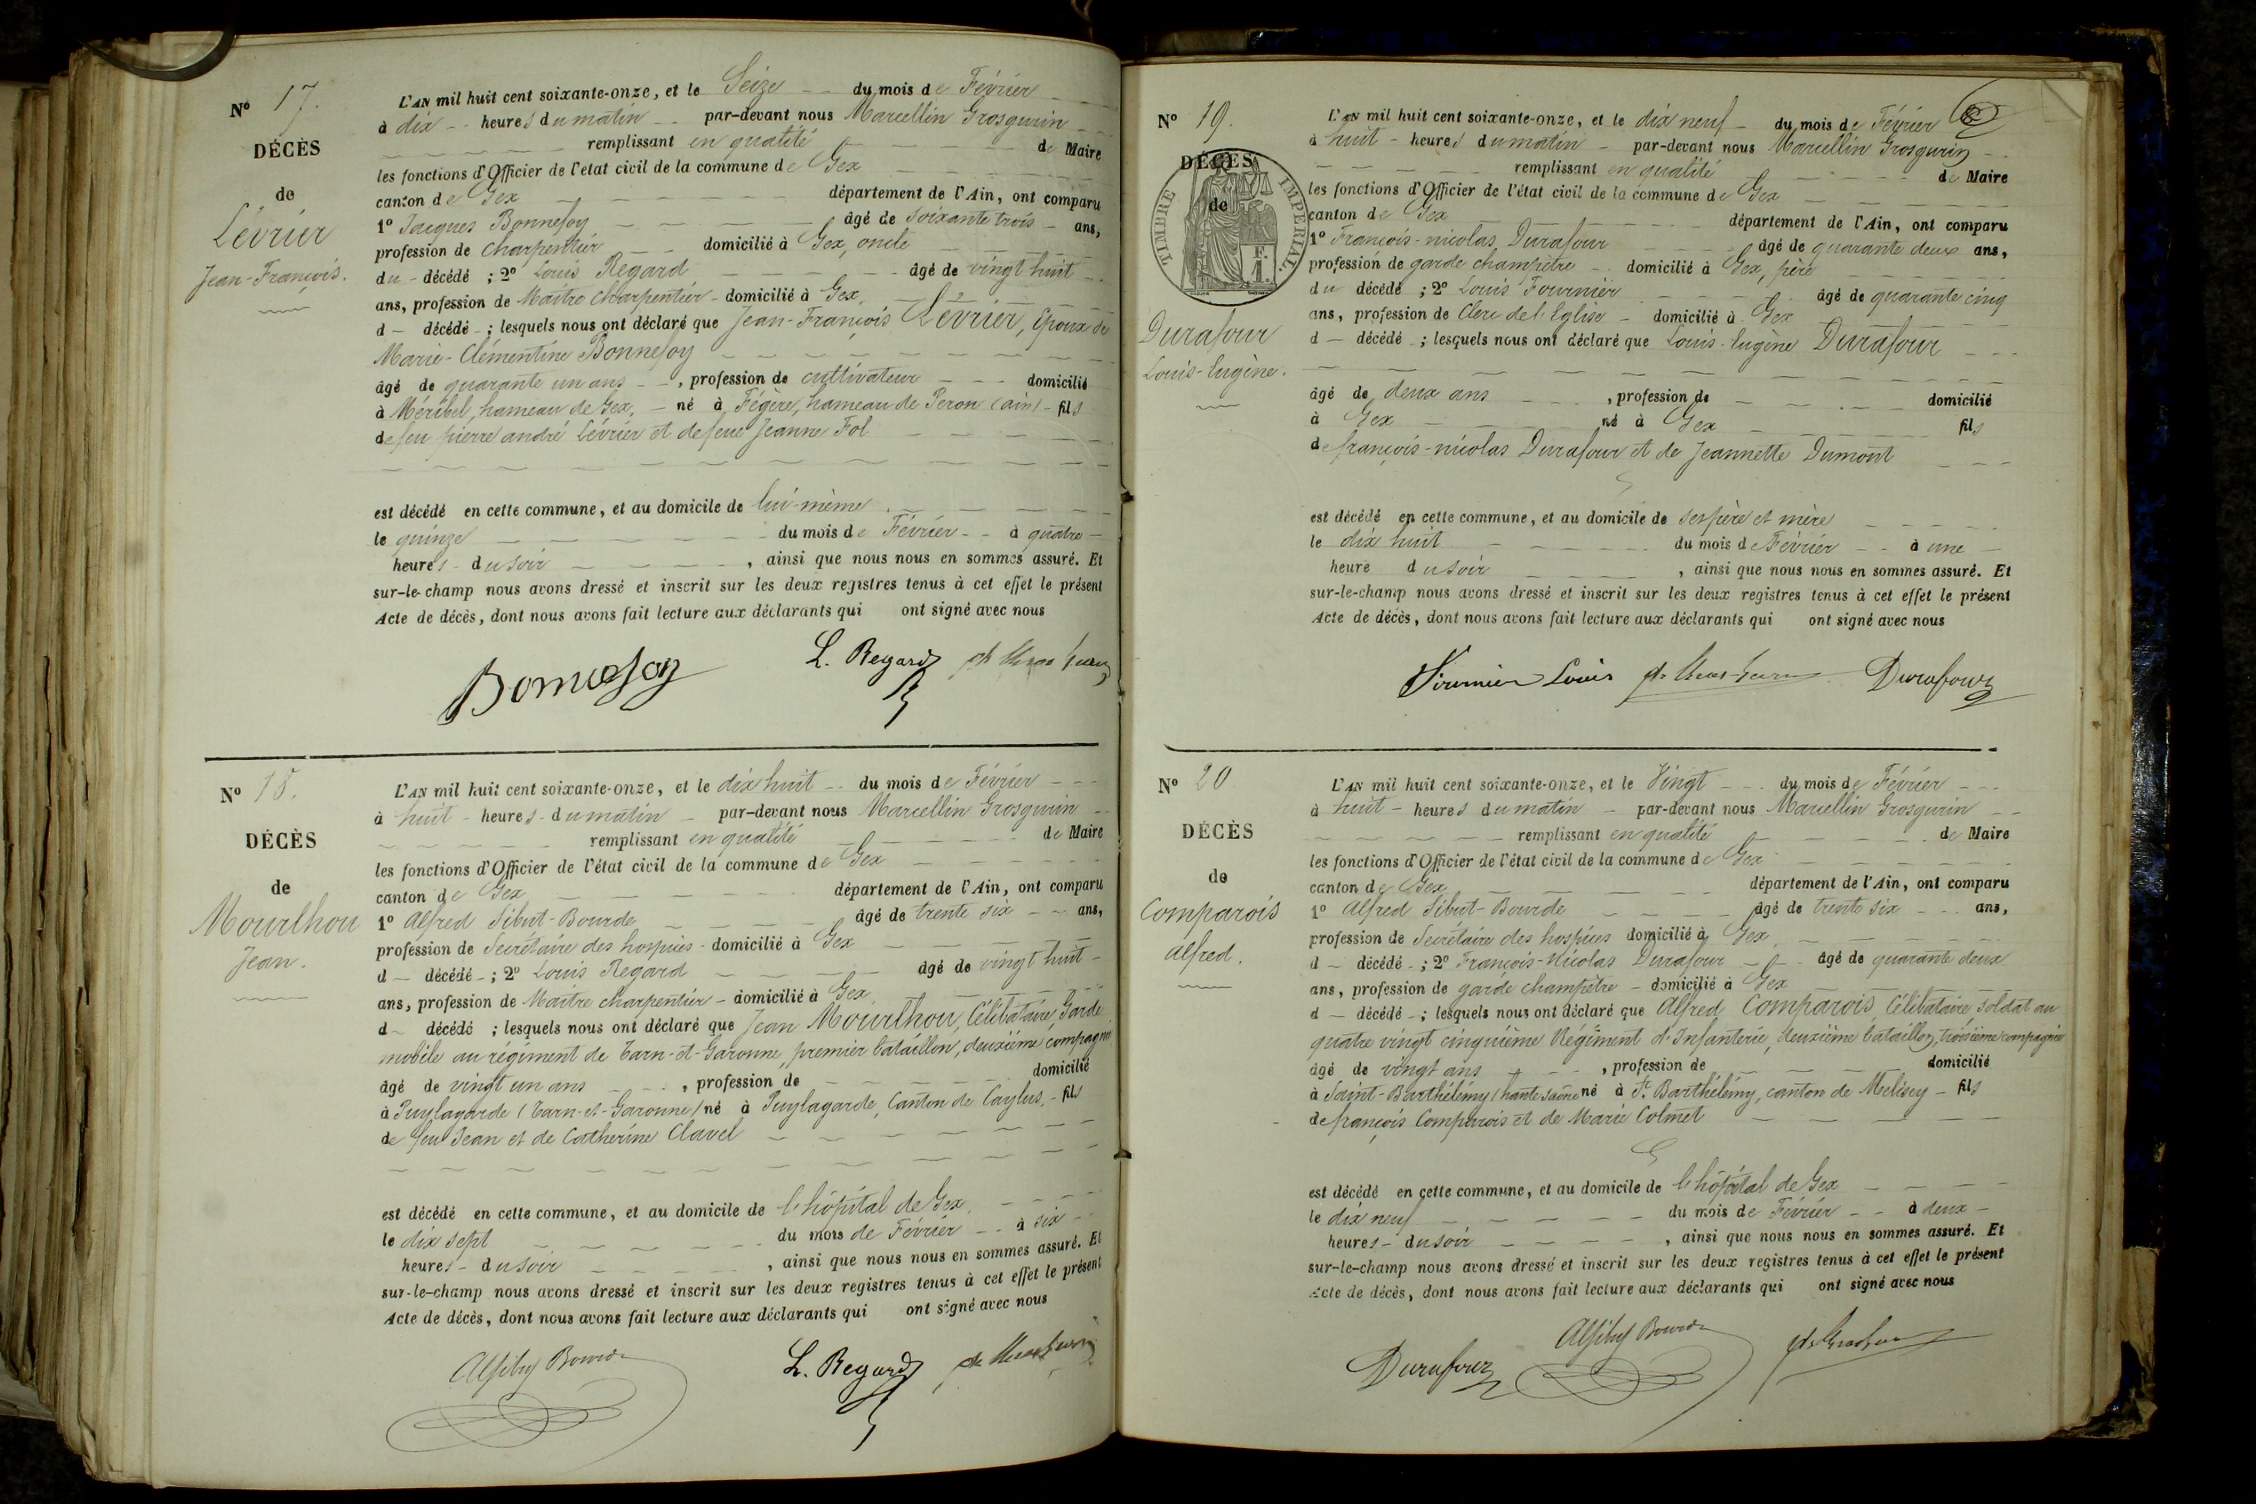 N° 17.
DÉCÈS
de
Lévrier
Jean-François.
L'AN mil huit cent soixante-onze, et le Seize du mois de Février
à dix heures du matin par-devant nous Marcellin Grosgurin
remplissant en qualité de Maire
les fonctions d'Officier de l'état civil de la commune de Gex
canton de Gex département de l'Ain, ont comparu
1° Jacques Bonnefoy âgé de soixante trois ans,
profession de charpentier domicilié à Gex, oncle
du décédé ; 2° Louis Regard âgé de vingt huit
ans, profession de Maître charpentier domicilié à Gex,
d décédé ; lesquels nous ont déclaré que Jean-François Lévrier, Époux de
Marie-Clémentine Bonnefoy
âgé de quarante un ans, profession de cultivateur domicilié
à Méribel, hameau de Gex, né à Fégère, hameau de Peron (ain) fils
de feu pierre andré Lévrier et de feue Jeanne Fol
est décédé en cette commune, et au domicile de lui-même
le quinze du mois de Février à quatre
heures du soir, ainsi que nous nous en sommes assuré. Et
sur-le-champ nous avons dressé et inscrit sur les deux registres tenus à cet effet le présent
Acte de décès, dont nous avons fait lecture aux déclarants qui ont signé avec nous
Bonnefoy L. Regard
N° 18.
DÉCÈS
de
Mourlhou
Jean.
L'AN mil huit cent soixante-onze, et le dix huit du mois de Février
à huit heures du matin par-devant nous Marcellin Grosgurin
remplissant en qualité de Maire
les fonctions d'Officier de l'état civil de la commune de Gex
canton de Gex département de l'Ain, ont comparu
1° Alfred Sibut-Bourde âgé de trente six ans,
profession de Secrétaire des hospices domicilié à Gex
d décédé ; 2° Louis Regard âgé de vingt huit
ans, profession de Maître charpentier domicilié à Gex
d décédé ; lesquels nous ont déclaré que Jean Mourlhou, Célibataire, Garde
mobile au régiment de Tarn-et-Garonne, premier bataillon, deuxième compagnie
âgé de vingt un ans, profession de domicilié
à Puylagarde (Tarn-et-Garonne) né à Puylagarde, Canton de Caylus, fils
de feu Jean et de Catherine Clavel
est décédé en cette commune, et au domicile de l'hôpital de Gex
le dix sept du mois de Février à six
heures du soir, ainsi que nous nous en sommes assuré. Et
sur-le-champ nous avons dressé et inscrit sur les deux registres tenus à cet effet le présent
Acte de décès, dont nous avons fait lecture aux déclarants qui ont signé avec nous
L. Regard
N° 19.
DÉCÈS
de
TIMBRE IMPÉRIAL
Durafour
Louis-Eugène.
L'AN mil huit cent soixante-onze, et le dix neuf du mois de Février
à huit heures du matin par-devant nous Marcellin Grosgurin
remplissant en qualité de Maire
les fonctions d'Officier de l'état civil de la commune de Gex
canton de Gex département de l'Ain, ont comparu
1° François-nicolas Durafour âgé de quarante deux ans,
profession de garde champêtre domicilié à Gex, père
du décédé ; 2° Louis Fournier âgé de quarante cinq
ans, profession de Clerc de l'Eglise domicilié à Gex
d décédé ; lesquels nous ont déclaré que Louis-Eugène Durafour
âgé de deux ans, profession de domicilié
à Gex né à Gex fils
de françois-nicolas Durafour et de Jeannette Dumont
est décédé en cette commune, et au domicile de ses père et mère
le dix huit du mois de Février à une
heure du soir, ainsi que nous nous en sommes assuré. Et
sur-le-champ nous avons dressé et inscrit sur les deux registres tenus à cet effet le présent
Acte de décès, dont nous avons fait lecture aux déclarants qui ont signé avec nous
Fournier Louis Durafour
N° 20
DÉCÈS
de
Comparois
Alfred.
L'AN mil huit cent soixante-onze, et le Vingt du mois de Février
à huit heures du matin par-devant nous Marcellin Grosgurin
remplissant en qualité de Maire
les fonctions d'Officier de l'état civil de la commune de Gex
canton de Gex département de l'Ain, ont comparu
1° Alfred Sibut-Bourde âgé de trente six ans,
profession de Secrétaire des hospices domicilié à Gex
d décédé ; 2° François-Nicolas Durafour âgé de quarante deux
ans, profession de garde champêtre domicilié à Gex
d décédé ; lesquels nous ont déclaré que Alfred Comparois, Célibataire, soldat au
quatre vingt cinquième Régiment d'Infanterie, deuxième bataillon, troisième compagnie
âgé de vingt ans, profession de domicilié
à Saint-Barthélémy (haute saône né à St. Barthélémy, canton de Melisey fils
de françois Comparois et de Marie Colmet
est décédé en cette commune, et au domicile de l'hôpital de Gex
le dix neuf du mois de Février à deux
heures du soir, ainsi que nous nous en sommes assuré. Et
sur-le-champ nous avons dressé et inscrit sur les deux registres tenus à cet effet le présent
Acte de décès, dont nous avons fait lecture aux déclarants qui ont signé avec nous
Durafour